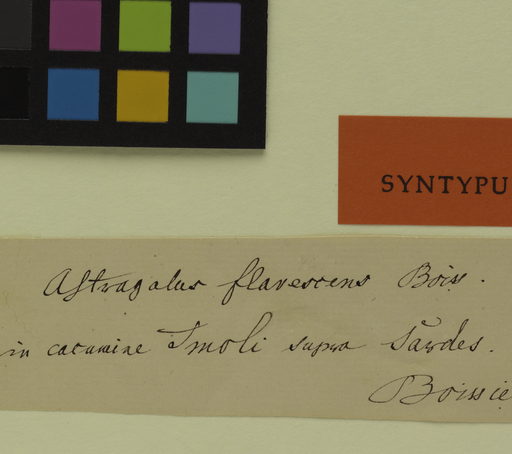 SYNTYPU
Astragalus flavescens Boiss.
in cacumine Tmoli supra Sardes.
Boissie